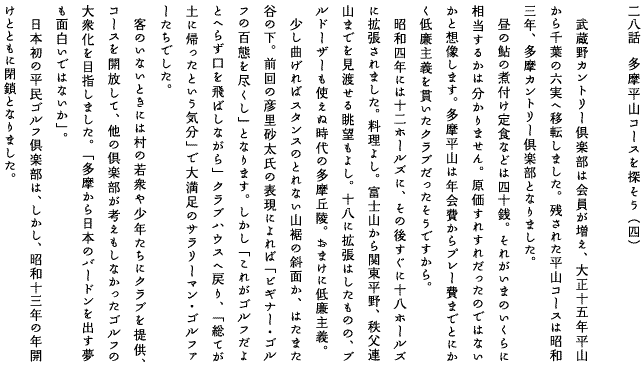 二八話　多摩平山コースを探そう（四）
武蔵野カントリー倶楽部は会員が増え、大正十五年平山
から千葉の六実へ移転しました。残された平山コースは昭和
三年、多摩カントリー倶楽部となりました。
昼の鮎の煮付け定食などは四十銭。それがいまのいくらに
相当するかは分かりません。原価すれすれだったのではない
かと想像します。多摩平山は年会費からプレー費までとにか
く低廉主義を貫いたクラブだったそうですから。
昭和四年には十二ホールズに、その後すぐに十八ホールズ
に拡張されました。料理よし。富士山から関東平野、秩父連
山までを見渡せる眺望もよし。十八に拡張はしたものの、ブ
ルドーザーも使えぬ時代の多摩丘陵。おまけに低廉主義。
少し曲げればスタンスのとれない山裾の斜面か、はたまた
谷の下。前回の彦里砂太氏の表現によれば「ビギナー・ゴル
フの百態を尽くし」となります。しかし「これがゴルフだよ
とへらず口を飛ばしながら」クラブハウスへ戻り、「総てが
土に帰ったという気分」で大満足のサラリーマン・ゴルファ
ーたちでした。
客のいないときには村の若衆や少年たちにクラブを提供、
コースを開放して、他の倶楽部が考えもしなかったゴルフの
大衆化を目指しました。「多摩から日本のバードンを出す夢
も面白いではないか」。
日本初の平民ゴルフ倶楽部は、しかし、昭和十三年の年開
けとともに閉鎖となりました。